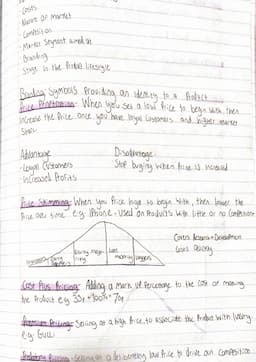 Costs
Nature of market
Competition
Market Segment aimed at
Branding
Stage in the Product lifecycle
Branding Symbols Providing an identity to a Product
Price Penetration- When you set a low Price to begin with then
increase the Price once you have loyal customers and higher market
Share
Advantage Disadvantage
- Loyal Customers Stop buying when Price is increased
- Increased Profits
Price Skimming: When you Price high to begin with, then lower the
Price over time e.g. iPhone - used on Products with little or no Competition
Covers Research + Development
Costs Quickly
Early majority Late majority laggers
Cost Plus Pricing: Adding a mark up Percentage to the cost of making
the Product e.g.
Premium Pricing- Selling at a high Price, to associate the Product with luxury
e.g. Gucci
Pricing - Selling at a deliberately low Price to drive out Competition